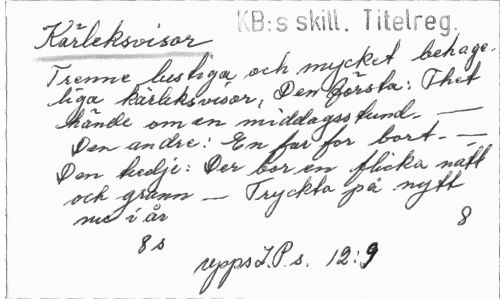 KB:s skill. Titelreg.
Kärleksvisor
Trenne lustiga och mycket behage-
liga kärleksvisor, Den första: Thet
hände om en middagsstund. —
Den andre: En far for bort. —
Den tredje: Der bor en flicka nätt
och grann — Tryckta på nytt
nu i år
8
8 s
12:9